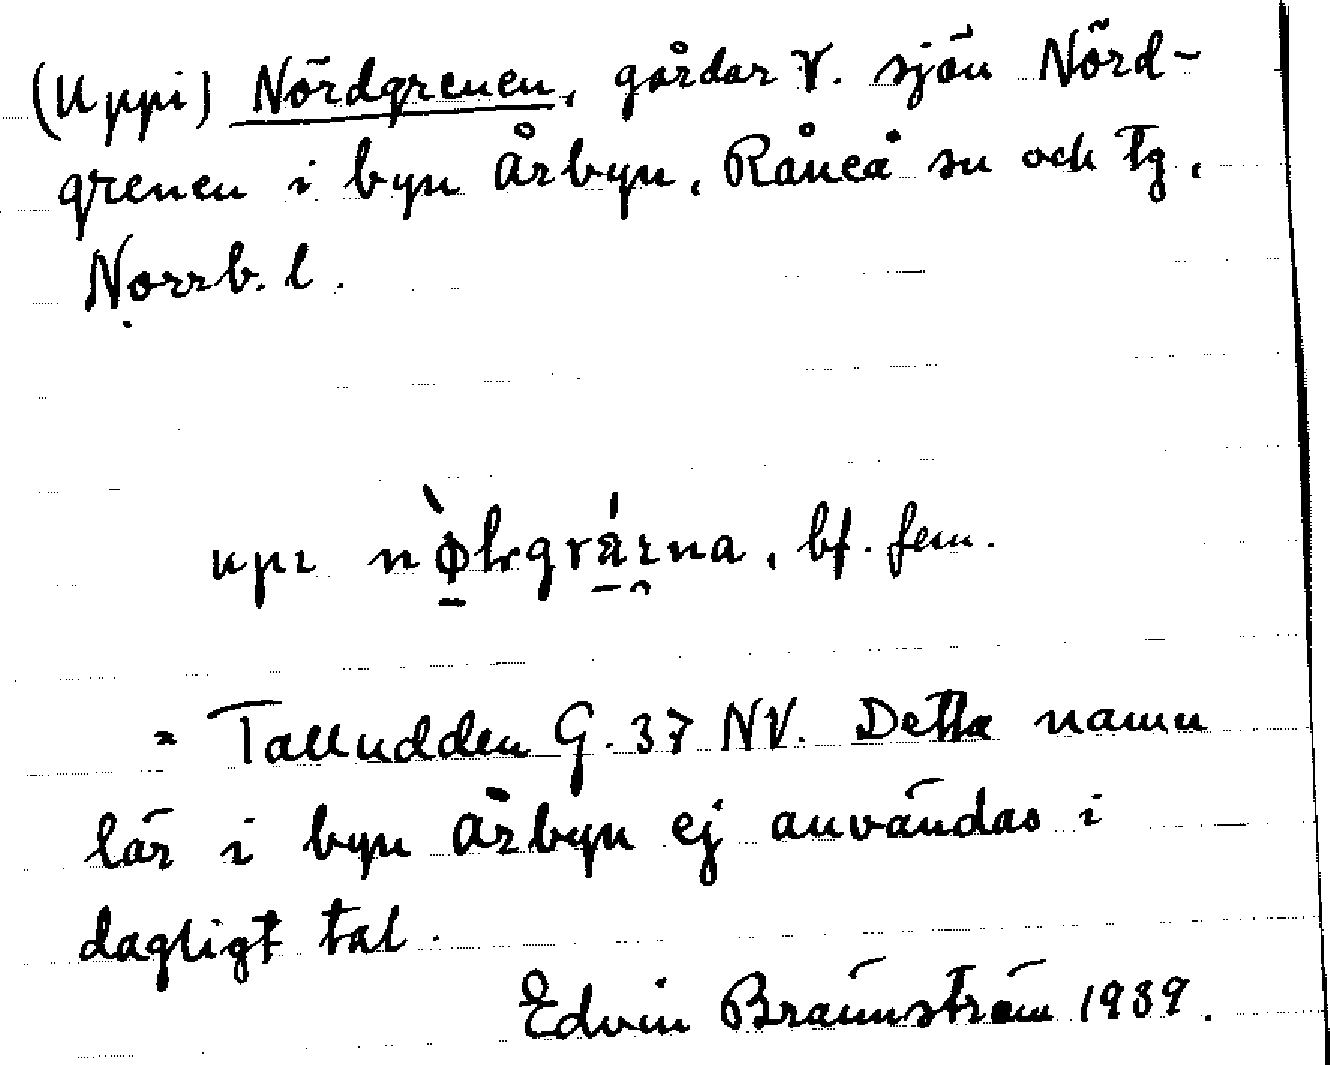 (Uppi) Nördgrenen, gårdar V. sjön Nörd-
grenen i byn Årbyn, Råneå sn och tg,
Norrb. l.
upı nø̀lrgrä́ɩna, bf. fem.
= Talludden G. 37 NV. Detta namn
lär i byn Årbyn ej användas i
dagligt tal.
Edvin Brännström 1939.